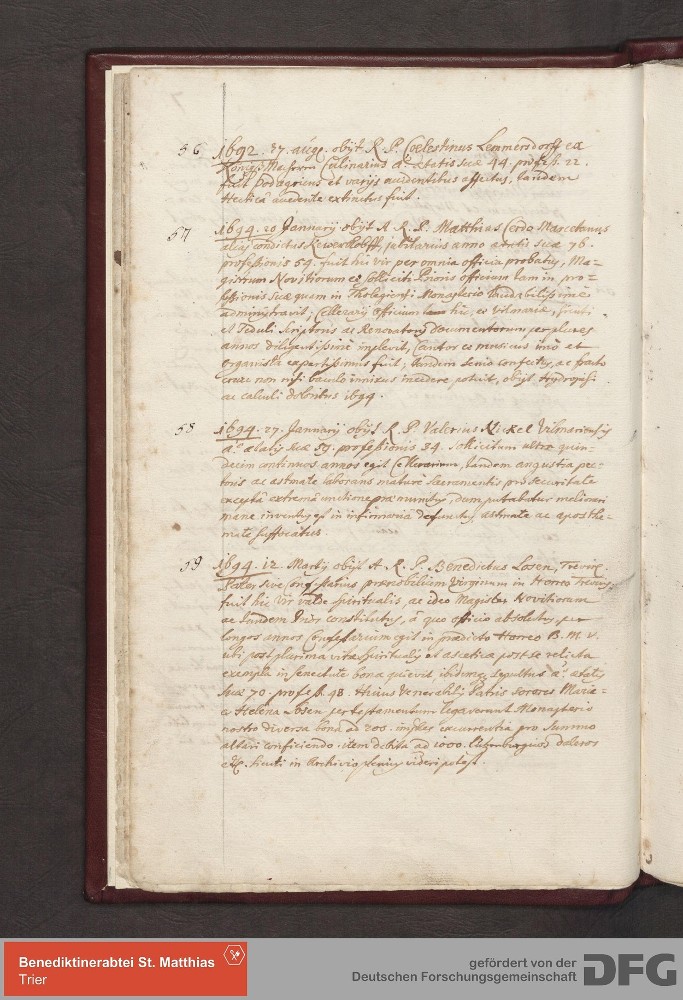 56 1692. 27. aug. obijt R. P. Coelestinus Lemmersdorff ex
Culinarius aº ætatis suæ 44. profess. 22.
fuit podagricus et varijs accidentibus affectus, tandem
Hecticâ accedente extinctus fuit.
57 1694. 20 Januarij obijt A. R. P. Matthias Cerdo Marcetanus
alias condictus jubilarius anno ætatis suæ 76.
professionis 59. fuit hic vir per omnia officia probatus, Ma-
gistrum Novitiorum et solliciti Prioris officium tam in pro=
fessionis suæ quam in Tholegiensi Monasterio laudabilissimè
administravit, Cellerarij officium hic, et Vilmariæ, sicuti
et seduli scriptoris ac Renovatoris documentorum per plures
annos diligentissimè implevit, Cantor et musicus imò et
organista expertissimus fuit, tandem senio confectus, ac fracto
crure non nisi baculo innixus incedere potuit, obijt Hydropisi
ac calculi doloribus 1694.
58 1694. 27. Januarij obijt R. P. Valerius Nickel Vilmariensis
aº ætatis suæ 59. professionis 34. sollicitum ultra quin-
decim continuos annos egit Cellerarium, tandem angustia pec-
toris ac astmate laborans maturè sacramentis pro securitate
exceptâ extremâ unctione præmunitus, dum putabatur meliorari
mane inventus est in infirmaria defunctus astmate ac aposthe-
mate suffocatus.
59 1694. 12. Martij obijt A. R. P. Benedictus Losen, Trevir.
Pater sive Confessarius prænobilium Virginum in Horreo Trevirs.
fuit hic vir valde spiritualis, ac ideo Magister Novitiorum
ac tandem Prior constitutus, â quo officio absolutus, per
longos annos Confessarium egit in prædicto Horreo B. M. V.
ubi post plurima vitæ spiritualis et asceticæ post se relicta
exempla in senectute bona quievit, ibidemq; sepultus aº. ætatis
suæ 70. profess. 48. Huius Venerabilis Patris sorores Maria=
et Helena Losen per testamentum legaverunt Monasterio
nostro diversa bona ad 200. excurrentia pro summo
altari conficiendo. item debita ad 1000. Luxemburgicos daleros
etc. sicuti in Archivio plenius videri potest.
Benediktinerabtei St. Matthias
Trier
gefördert von der
Deutschen Forschungsgemeinschaft
DFG